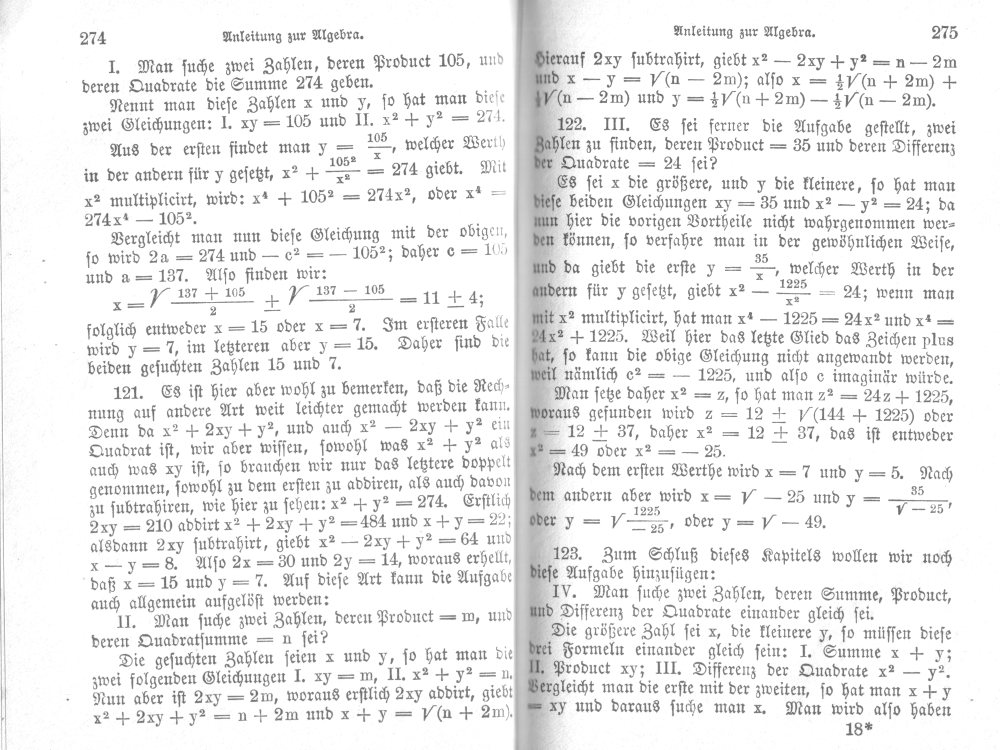 274
Anleitung zur Algebra.
I. Man suche zwei Zahlen, deren Product 105, und
deren Quadrate die Summe 274 geben.
Nennt man diese Zahlen x und y, so hat man diese
zwei Gleichungen: I. xy = 105 und II. x² + y² = 274.
Aus der ersten findet man y = 105/x, welcher Werth
in der andern für y gesetzt, x² + 105²/x² = 274 giebt. Mit
x² multiplicirt, wird: x⁴ + 105² = 274x², oder x⁴ =
274x⁴ — 105².
Vergleicht man nun diese Gleichung mit der obigen,
so wird 2a = 274 und — c² = — 105²; daher c = 105
und a = 137. Also finden wir:
x = √ 137 + 105/2 ± √ 137 — 105/2 = 11 ± 4;
folglich entweder x = 15 oder x = 7. Im ersteren Falle
wird y = 7, im letzteren aber y = 15. Daher sind die
beiden gesuchten Zahlen 15 und 7.
121. Es ist hier aber wohl zu bemerken, daß die Rech-
nung auf andere Art weit leichter gemacht werden kann.
Denn da x² + 2xy + y², und auch x² — 2xy + y² ein
Quadrat ist, wir aber wissen, sowohl was x² + y² als
auch was xy ist, so brauchen wir nur das letztere doppelt
genommen, sowohl zu dem ersten zu addiren, als auch davon
zu subtrahiren, wie hier zu sehen: x² + y² = 274. Erstlich
2xy = 210 addirt x² + 2xy + y² = 484 und x + y = 22;
alsdann 2xy subtrahirt, giebt x² — 2xy + y² = 64 und
x — y = 8. Also 2x = 30 und 2y = 14, woraus erhellt,
daß x = 15 und y = 7. Auf diese Art kann die Aufgabe
auch allgemein aufgelöst werden:
II. Man suche zwei Zahlen, deren Product = m, und
deren Quadratsumme = n sei?
Die gesuchten Zahlen seien x und y, so hat man die
zwei folgenden Gleichungen I. xy = m, II. x² + y² = n.
Nun aber ist 2xy = 2m, woraus erstlich 2xy addirt, giebt
x² + 2xy + y² = n + 2m und x + y = √(n + 2m).
Anleitung zur Algebra.
275
Hierauf 2xy subtrahirt, giebt x² — 2xy + y² = n — 2m
und x — y = √(n — 2m); also x = ½√(n + 2m) +
½√(n — 2m) und y = ½√(n + 2m) — ½√(n — 2m).
122. III. Es sei ferner die Aufgabe gestellt, zwei
Zahlen zu finden, deren Product = 35 und deren Differenz
der Quadrate = 24 sei?
Es sei x die größere, und y die kleinere, so hat man
diese beiden Gleichungen xy = 35 und x² — y² = 24; da
nun hier die vorigen Vortheile nicht wahrgenommen wer-
den können, so verfahre man in der gewöhnlichen Weise,
und da giebt die erste y = 35/x, welcher Werth in der
andern für y gesetzt, giebt x² — 1225/x² = 24; wenn man
mit x² multiplicirt, hat man x⁴ — 1225 = 24x² und x⁴ =
24x² + 1225. Weil hier das letzte Glied das Zeichen plus
hat, so kann die obige Gleichung nicht angewandt werden,
weil nämlich c² = — 1225, und also c imaginär würde.
Man setze daher x² = z, so hat man z² = 24z + 1225,
woraus gefunden wird z = 12 ± √(144 + 1225) oder
z = 12 ± 37, daher x² = 12 ± 37, das ist entweder
x² = 49 oder x² = — 25.
Nach dem ersten Werthe wird x = 7 und y = 5. Nach
dem andern aber wird x = √ — 25 und y = 35/√ — 25,
oder y = √ 1225/— 25, oder y = √ — 49.
123. Zum Schluß dieses Kapitels wollen wir noch
diese Aufgabe hinzufügen:
IV. Man suche zwei Zahlen, deren Summe, Product,
und Differenz der Quadrate einander gleich sei.
Die größere Zahl sei x, die kleinere y, so müssen diese
drei Formeln einander gleich sein: I. Summe x + y;
II. Product xy; III. Differenz der Quadrate x² — y².
Vergleicht man die erste mit der zweiten, so hat man x + y
= xy und daraus suche man x. Man wird also haben
18*